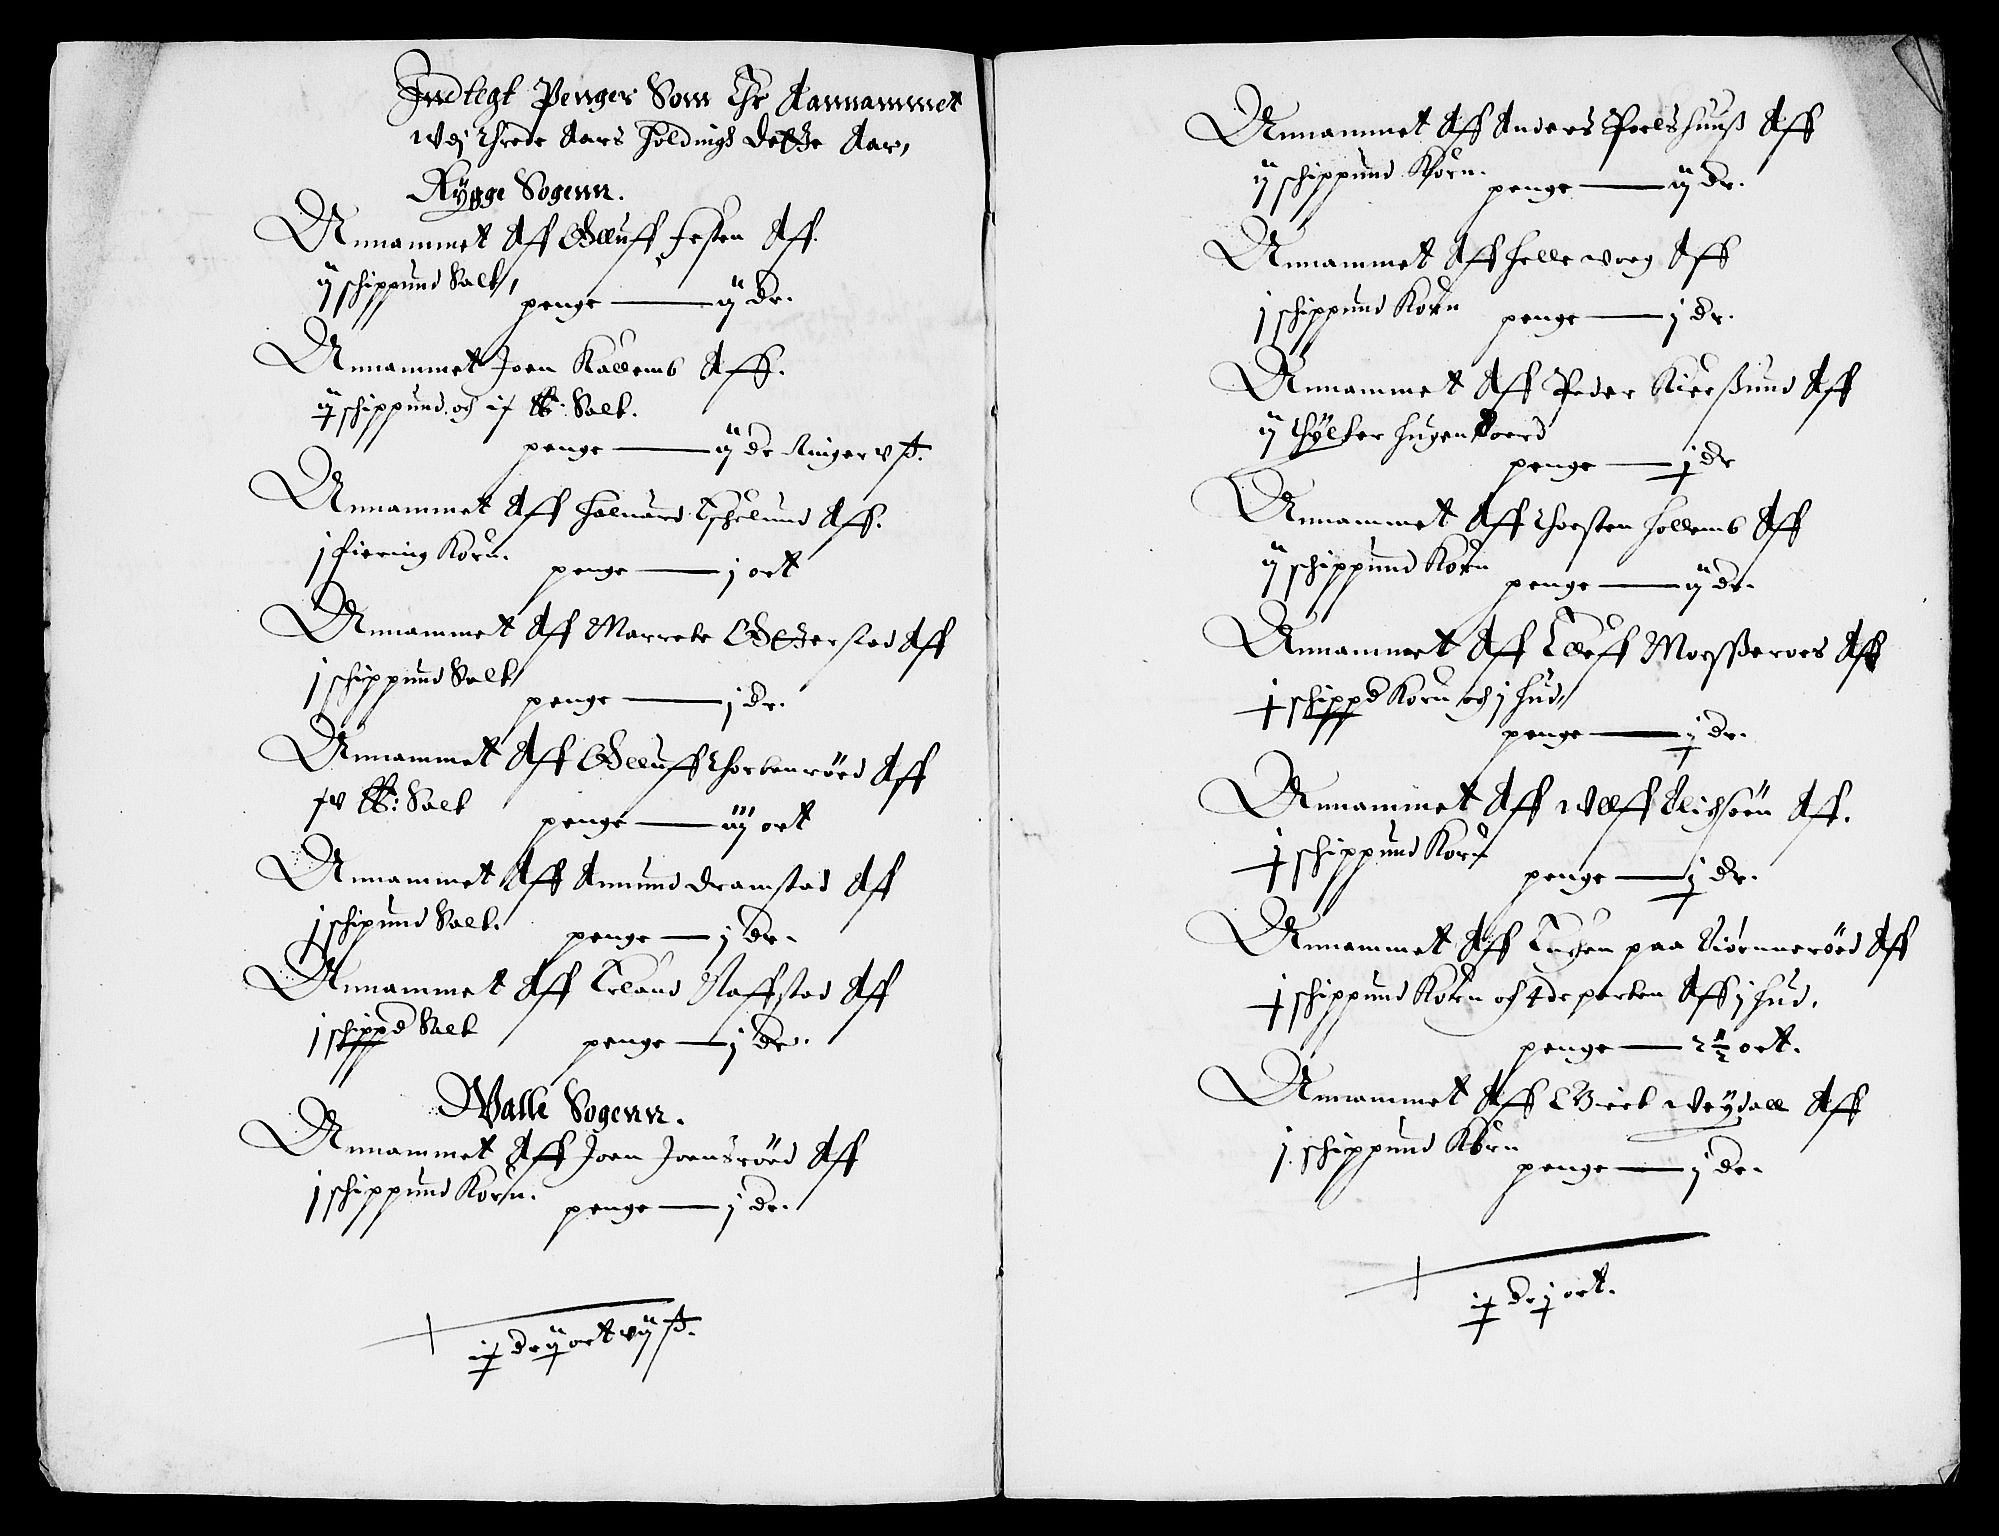 Indtegt Penger Som Er Aannammet
vdj threde Aars holdingh dette Aar,
Rygge Sogenn.
Annammet Aff Oluff festen Aff
ij schippund Salt, penge — ij dr.
Annammet Joen Kallemb Aff.
ij schippund och Salt.
penge — ij dr Ringer v ß.
Annammet Aff Haluard Eschelund Aff.
j fiering Korn. penge — j ort
Annammet Aff Marrete Aff
j schippund Salt penge — j dr.
Annammet Aff Oluff Thorbenröed Aff
Salt penge — iij ort
Annammet Aff Amund dramstad Aff
j schipund Salt. penge — j dr.
Annammet Aff Erland Naffstad Aff
j schippd Salt penge — j dr.
Walle Sogenn.
Annammet Aff Joen Joensröed Aff
j schippund Korn. penge — j dr.
dr ij ort vij ß.
Annammet Aff Anders Poelshuuß Aff
ij schippund Korn. penge — ij dr.
Annammet Aff helle worg Aff
j schippund Korn penge — j dr.
Annammet Aff Peder Kierßund Aff
ij thylter hugenboerd
penge — j dr
Annammet Aff Thorsten hollemb Aff
ij schippund Korn penge — ij dr.
Annammet Aff Elleff Aff
j schippd Korn och j hud,
penge — j dr.
Annammet Aff Vlff Aff.
j schippund Korn penge — j dr.
Annammet Aff paa Biörnneröed Aff
j schippund Korn och 4de parten Aff j hud.
penge — 2 1/2 ort.
Annammet Aff weydall Aff
j schippund Korn penge — j dr.
dr j ort.